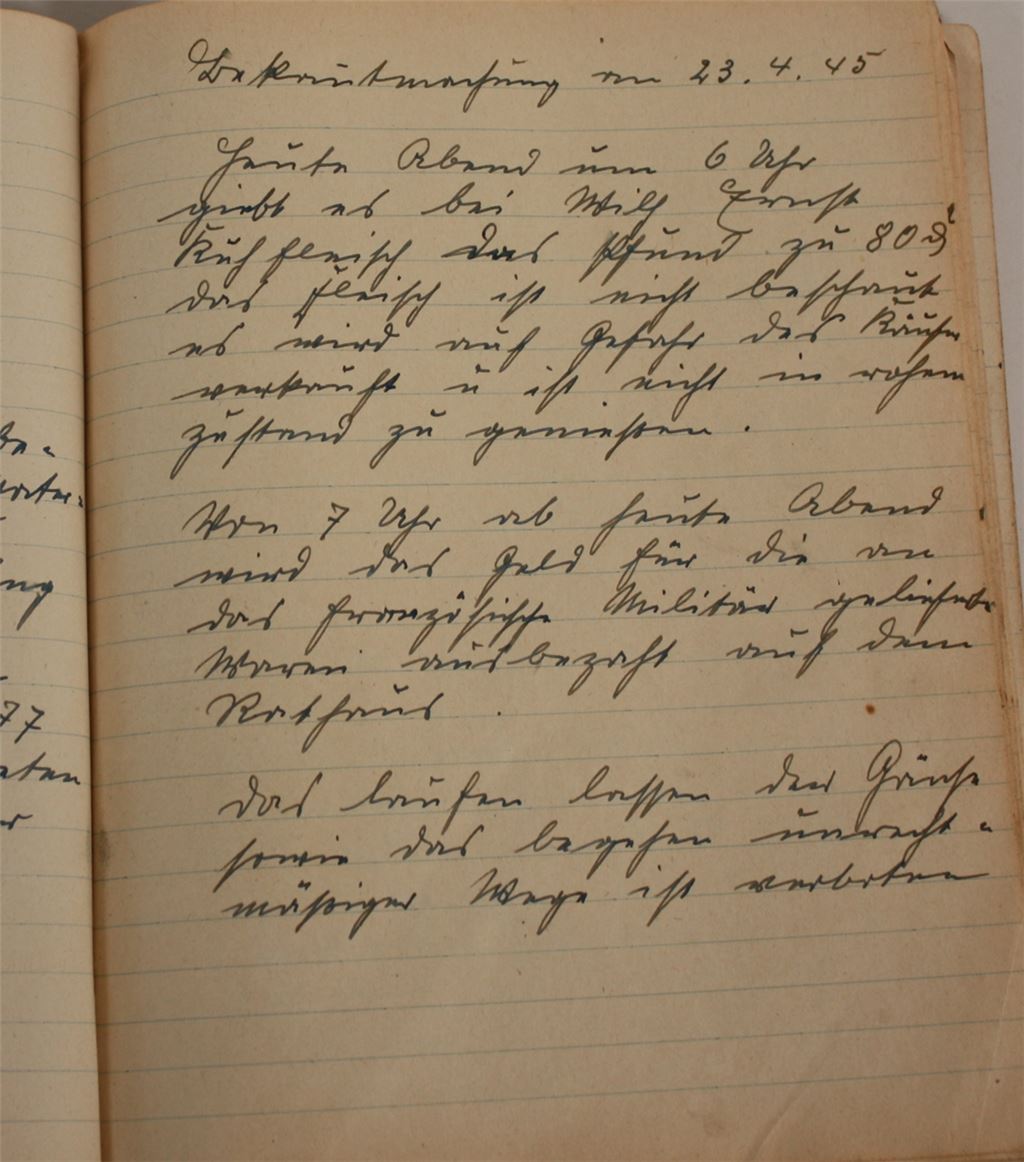 Be-
ng
77
eten
Bekanntmachung am 23. 4. 45
Heute Abend um 6 Uhr
giebt es bei Wilh Ernst
Kuhfleisch das Pfund zu 80 ₰
das Fleisch ist nicht beschaut
es wird auf Gefahr des Käufer
verkauft u ist nicht in rohem
zustand zu genießen .
Von 7 Uhr ab heute Abend
wird das Geld für die an
das französische Militär gelieferte
Waren ausbezahlt auf dem
Rathaus .
Das laufen lassen der Gänse
sowie das begehen unrecht-
mäßiger Wege ist verboten